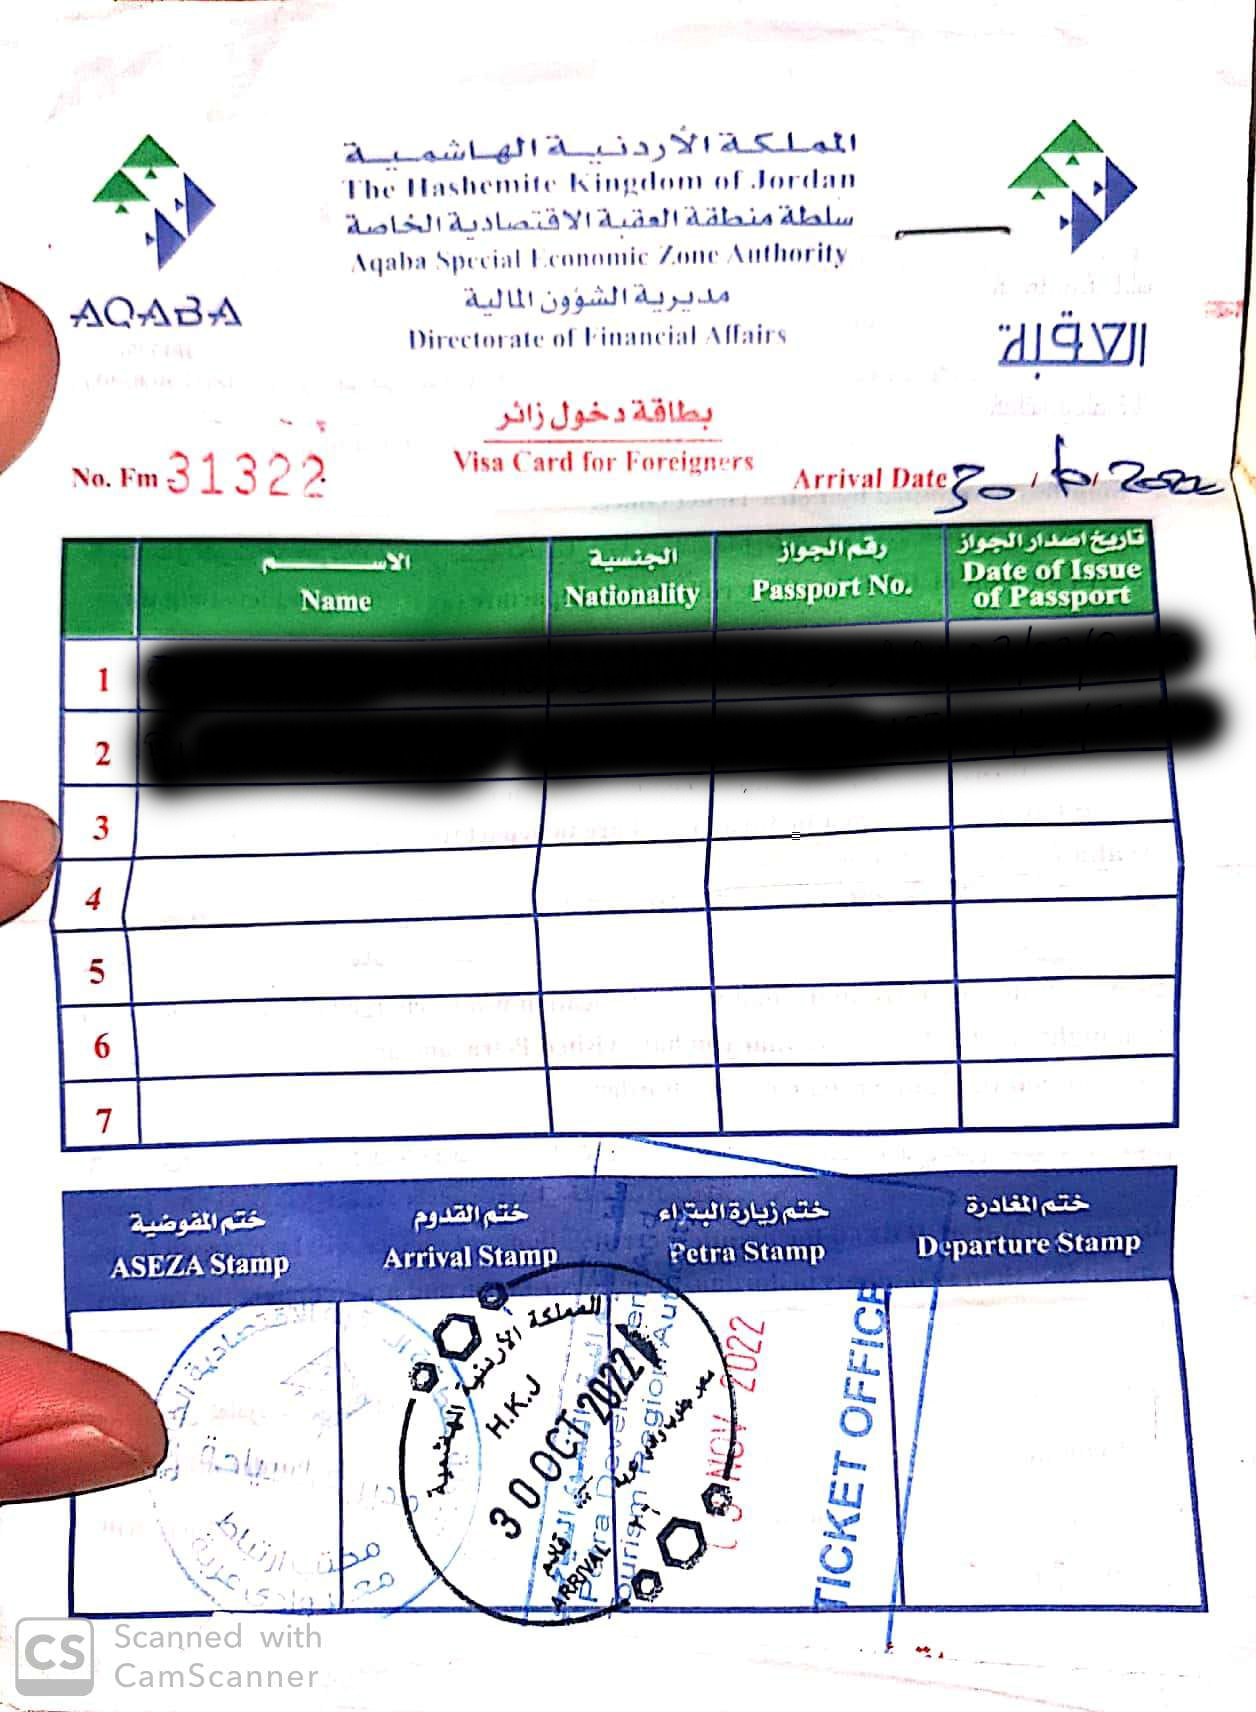 المملكة الأردنية الهاشمية
The Hashemite Kingdom of Jordan
سلطة منطقة العقبة الاقتصادية الخاصة
Aqaba Special Economic Zone Authority
مديرية الشؤون المالية
Directorate of Financial Affairs
AQABA
العقبة
بطاقة دخول زائر
Visa Card for Foreigners
No. Fm 31322
Arrival Date 30 / / 2022
الاســـم
Name
الجنسية
Nationality
رقم الجواز
Passport No.
تاريخ اصدار الجواز
Date of Issue
of Passport
1
2
3
4
5
6
7
ختم المفوضية
ASEZA Stamp
ختم القدوم
Arrival Stamp
ختم زيارة البتراء
Petra Stamp
ختم المغادرة
Departure Stamp
المملكة الأردنية الهاشمية
H.K.J
30 OCT 2022
قدوم
ARRIVAL
Petra Development
Tourism Region
NOV 2022
TICKET OFFICE
CS
Scanned with
CamScanner